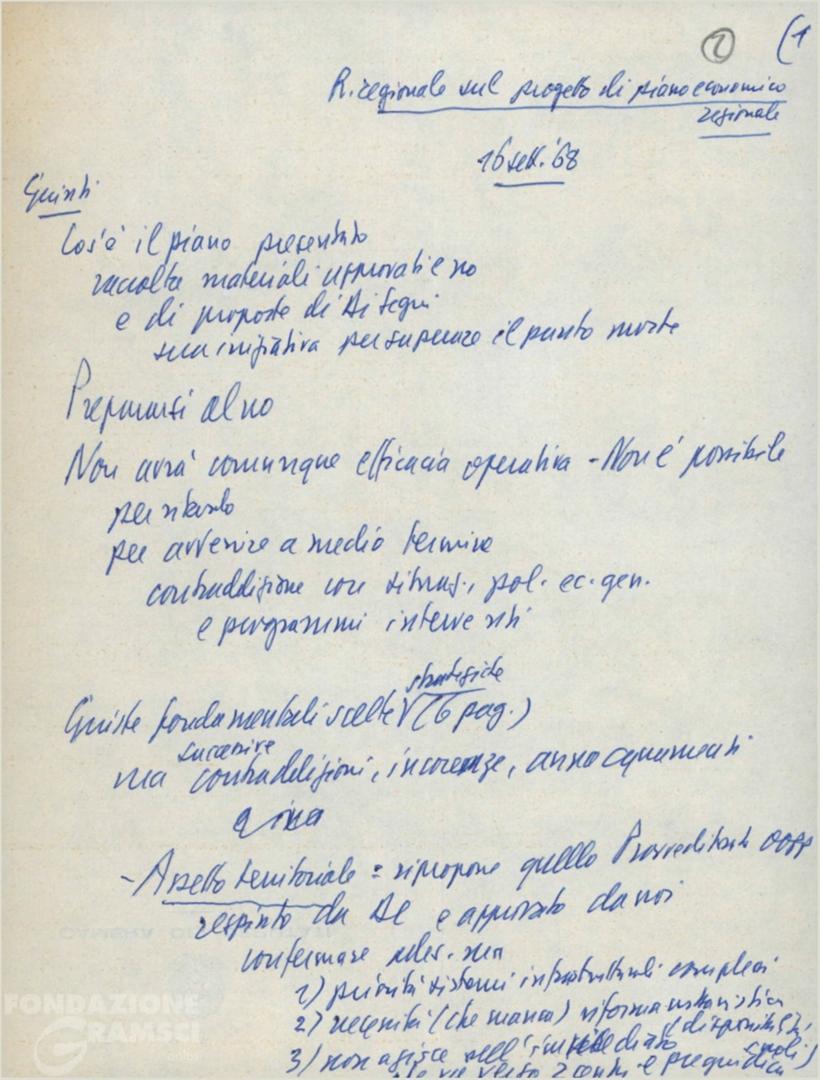 2 (1
R. regionale sul progetto di piano economico
regionale
16 sett. '68
Giunti
Cos'è il piano presentato
raccolta materiali approvati e no
e di proposte di disegni
sua iniziativa per superare il punto morto
Prepararsi al no
Non avrà comunque efficacia operativa - Non è possibile
per
per avvenire a medio termine
contraddizione con situaz., pol. ec. gen.
e programmi interventi
Giuste fondamentali scelte strategiche (6 pag.)
ma successive contraddizioni, incoerenze, annacquamenti
- Assetto territoriale = ripropone quello Provveditorato OOPP
respinto da e approvato da noi
confermare ma
1) priorità sistemi infrastrutturali complessi
2) necessità (che manca) riforma urbanistica
3) non agisce sull'immediato (disponibilità suoli)
verso 2 e pregiudica
FONDAZIONE
GRAMSCI